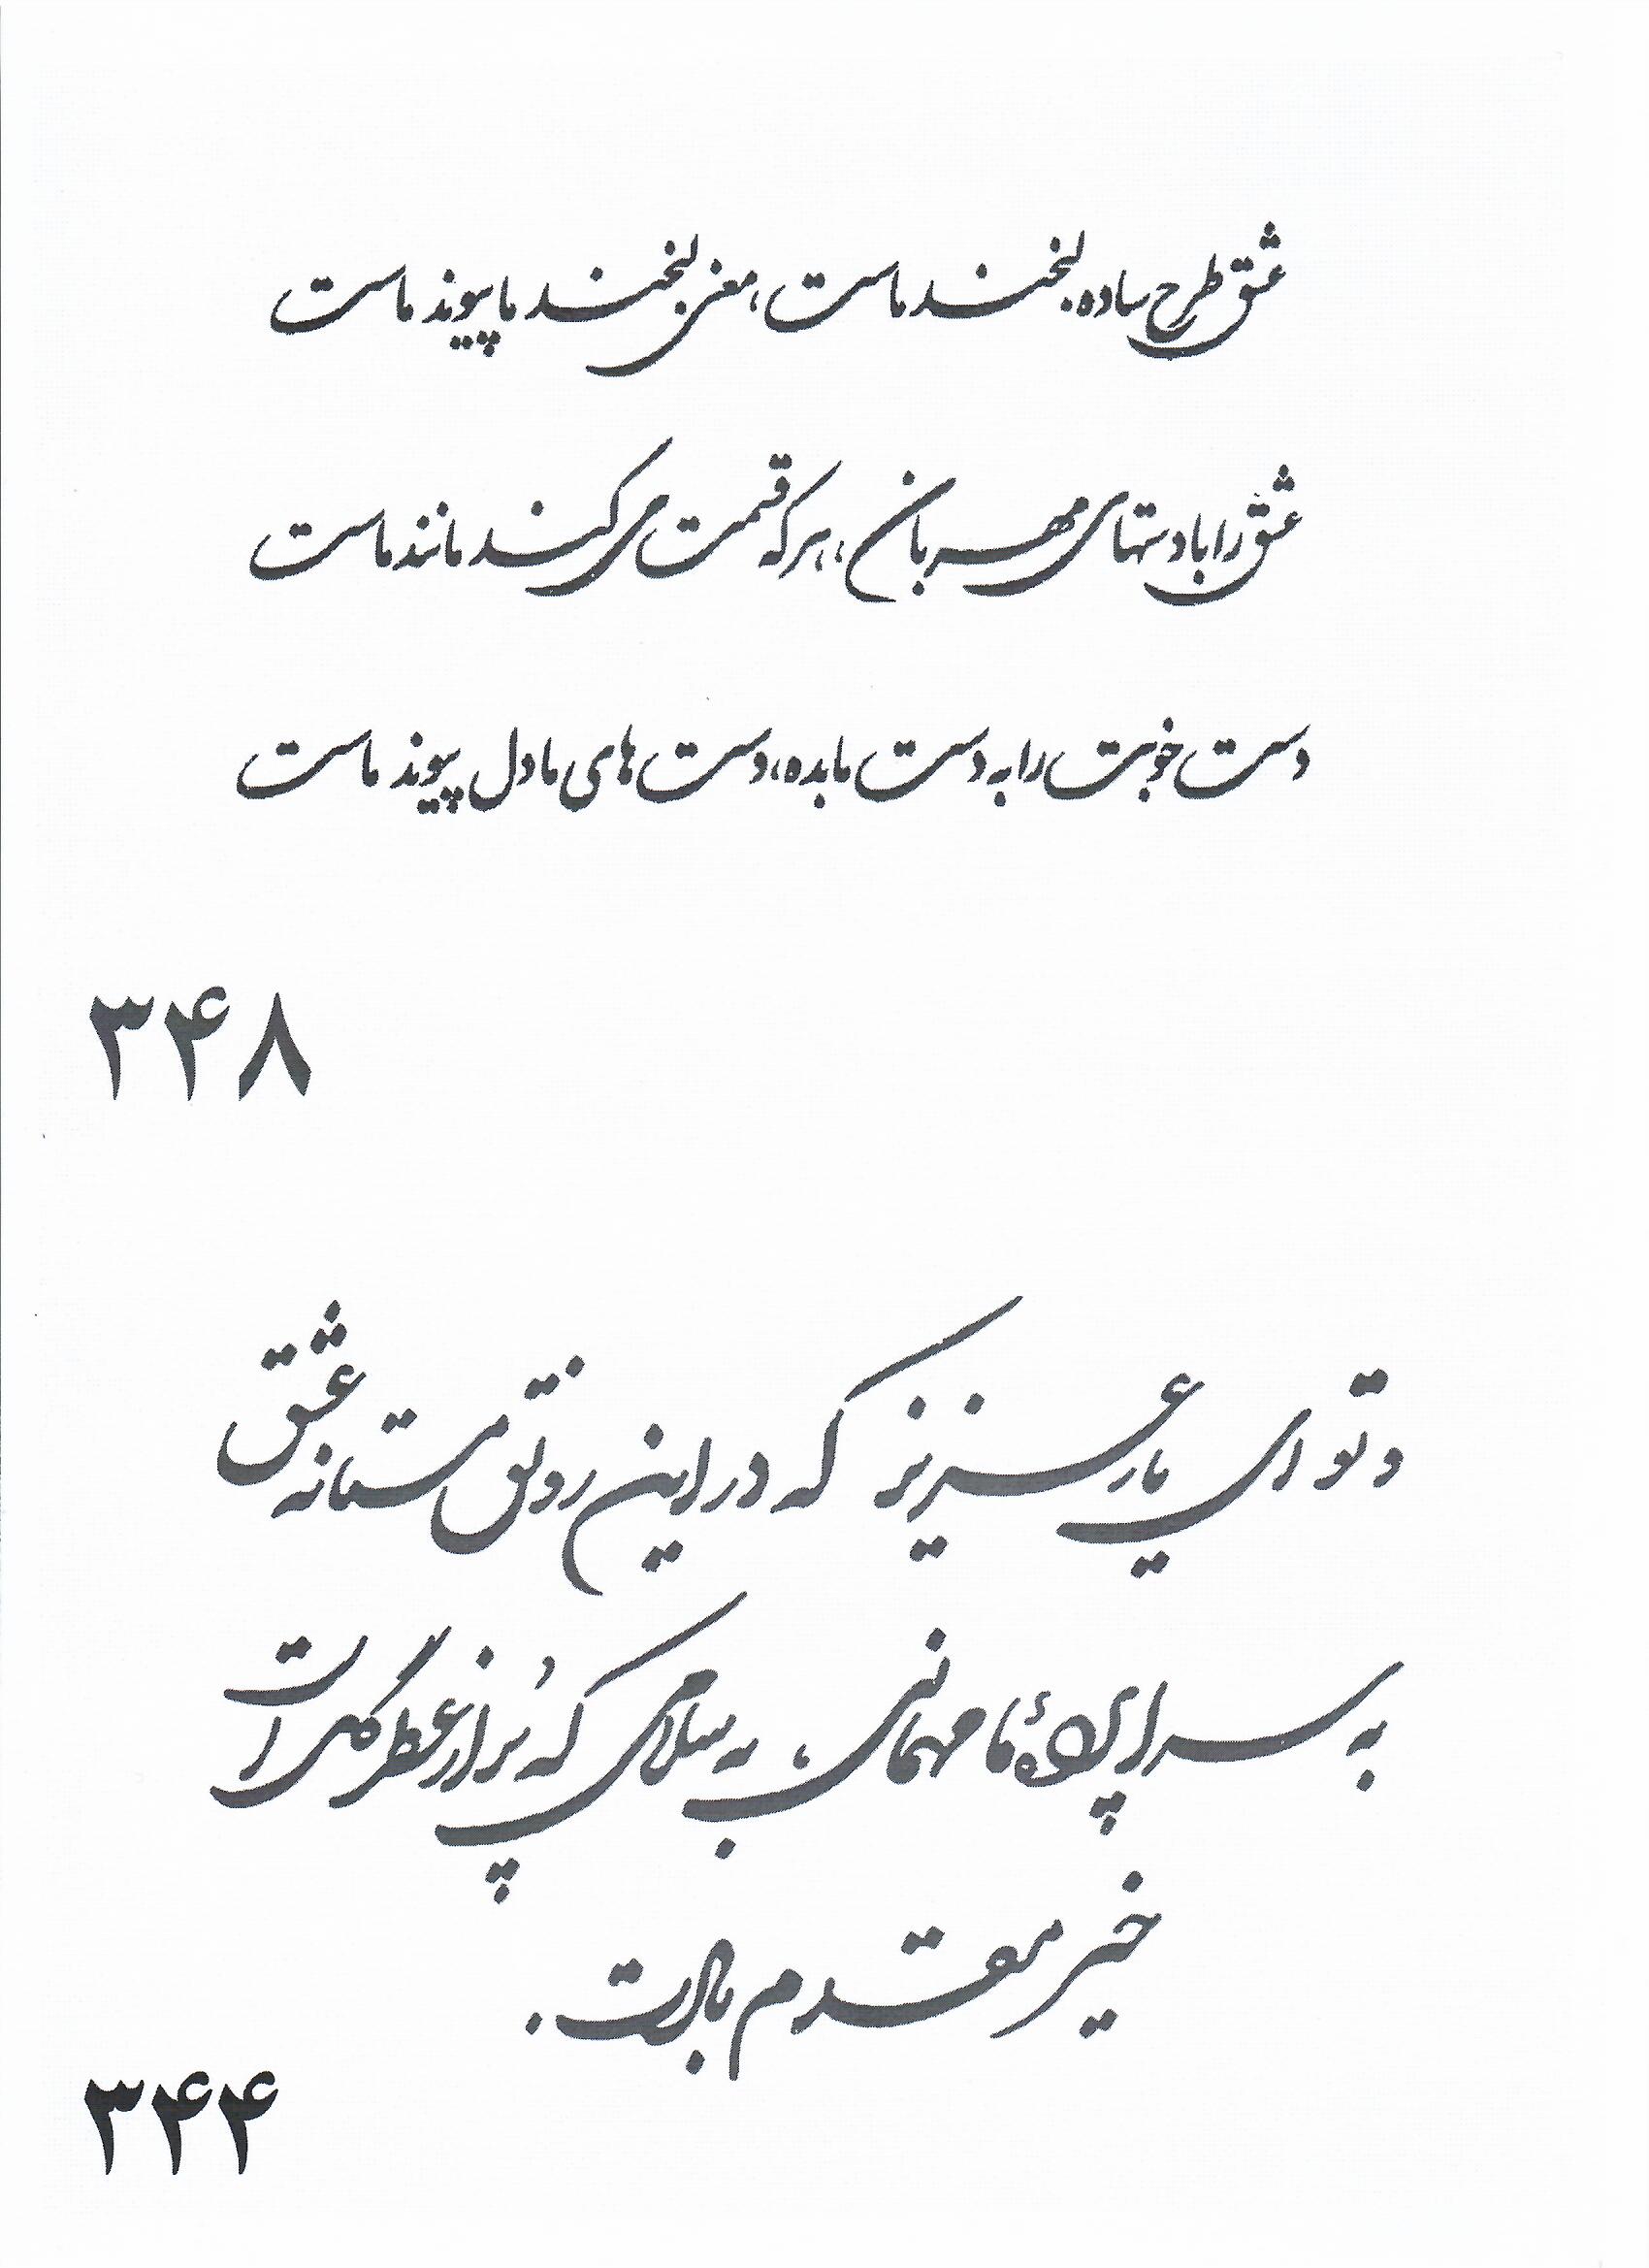 عشق طرح ساده لبخند ماست ، معنی لبخند ما پیوند ماست
عشق را با دستهای مهربان ، هر که قسمت می کند مانند ماست
دست خوبت را به دست ما بده ، دست های ما دل پیوند ماست
۳۴۸
و تو ای یار عزیز که در این رونق مستانه عشق
به سراپردهٔ ما مهمانی ، به سلامی که پُر از عطر گل است
خیر مقدم بادت .
۳۴۴